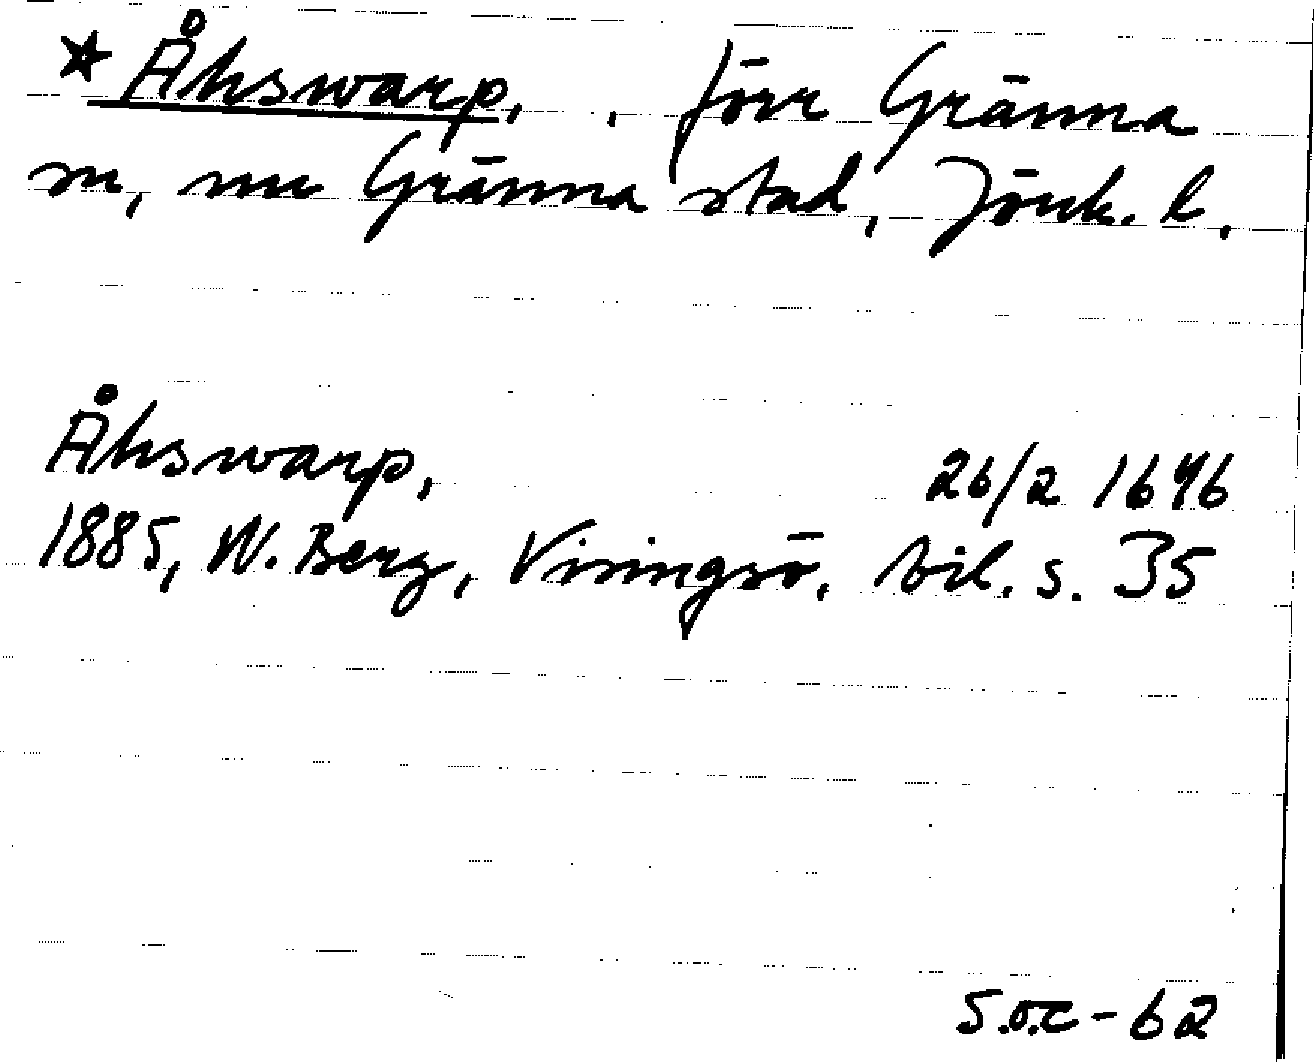 * Åhswarp, , förr Gränna
sn, nu Gränna stad, Jönk. l.
Åhswarp, 26/2 1646
1885, W. Berg, Visingsö, bil. s. 35
S.o.C - 62